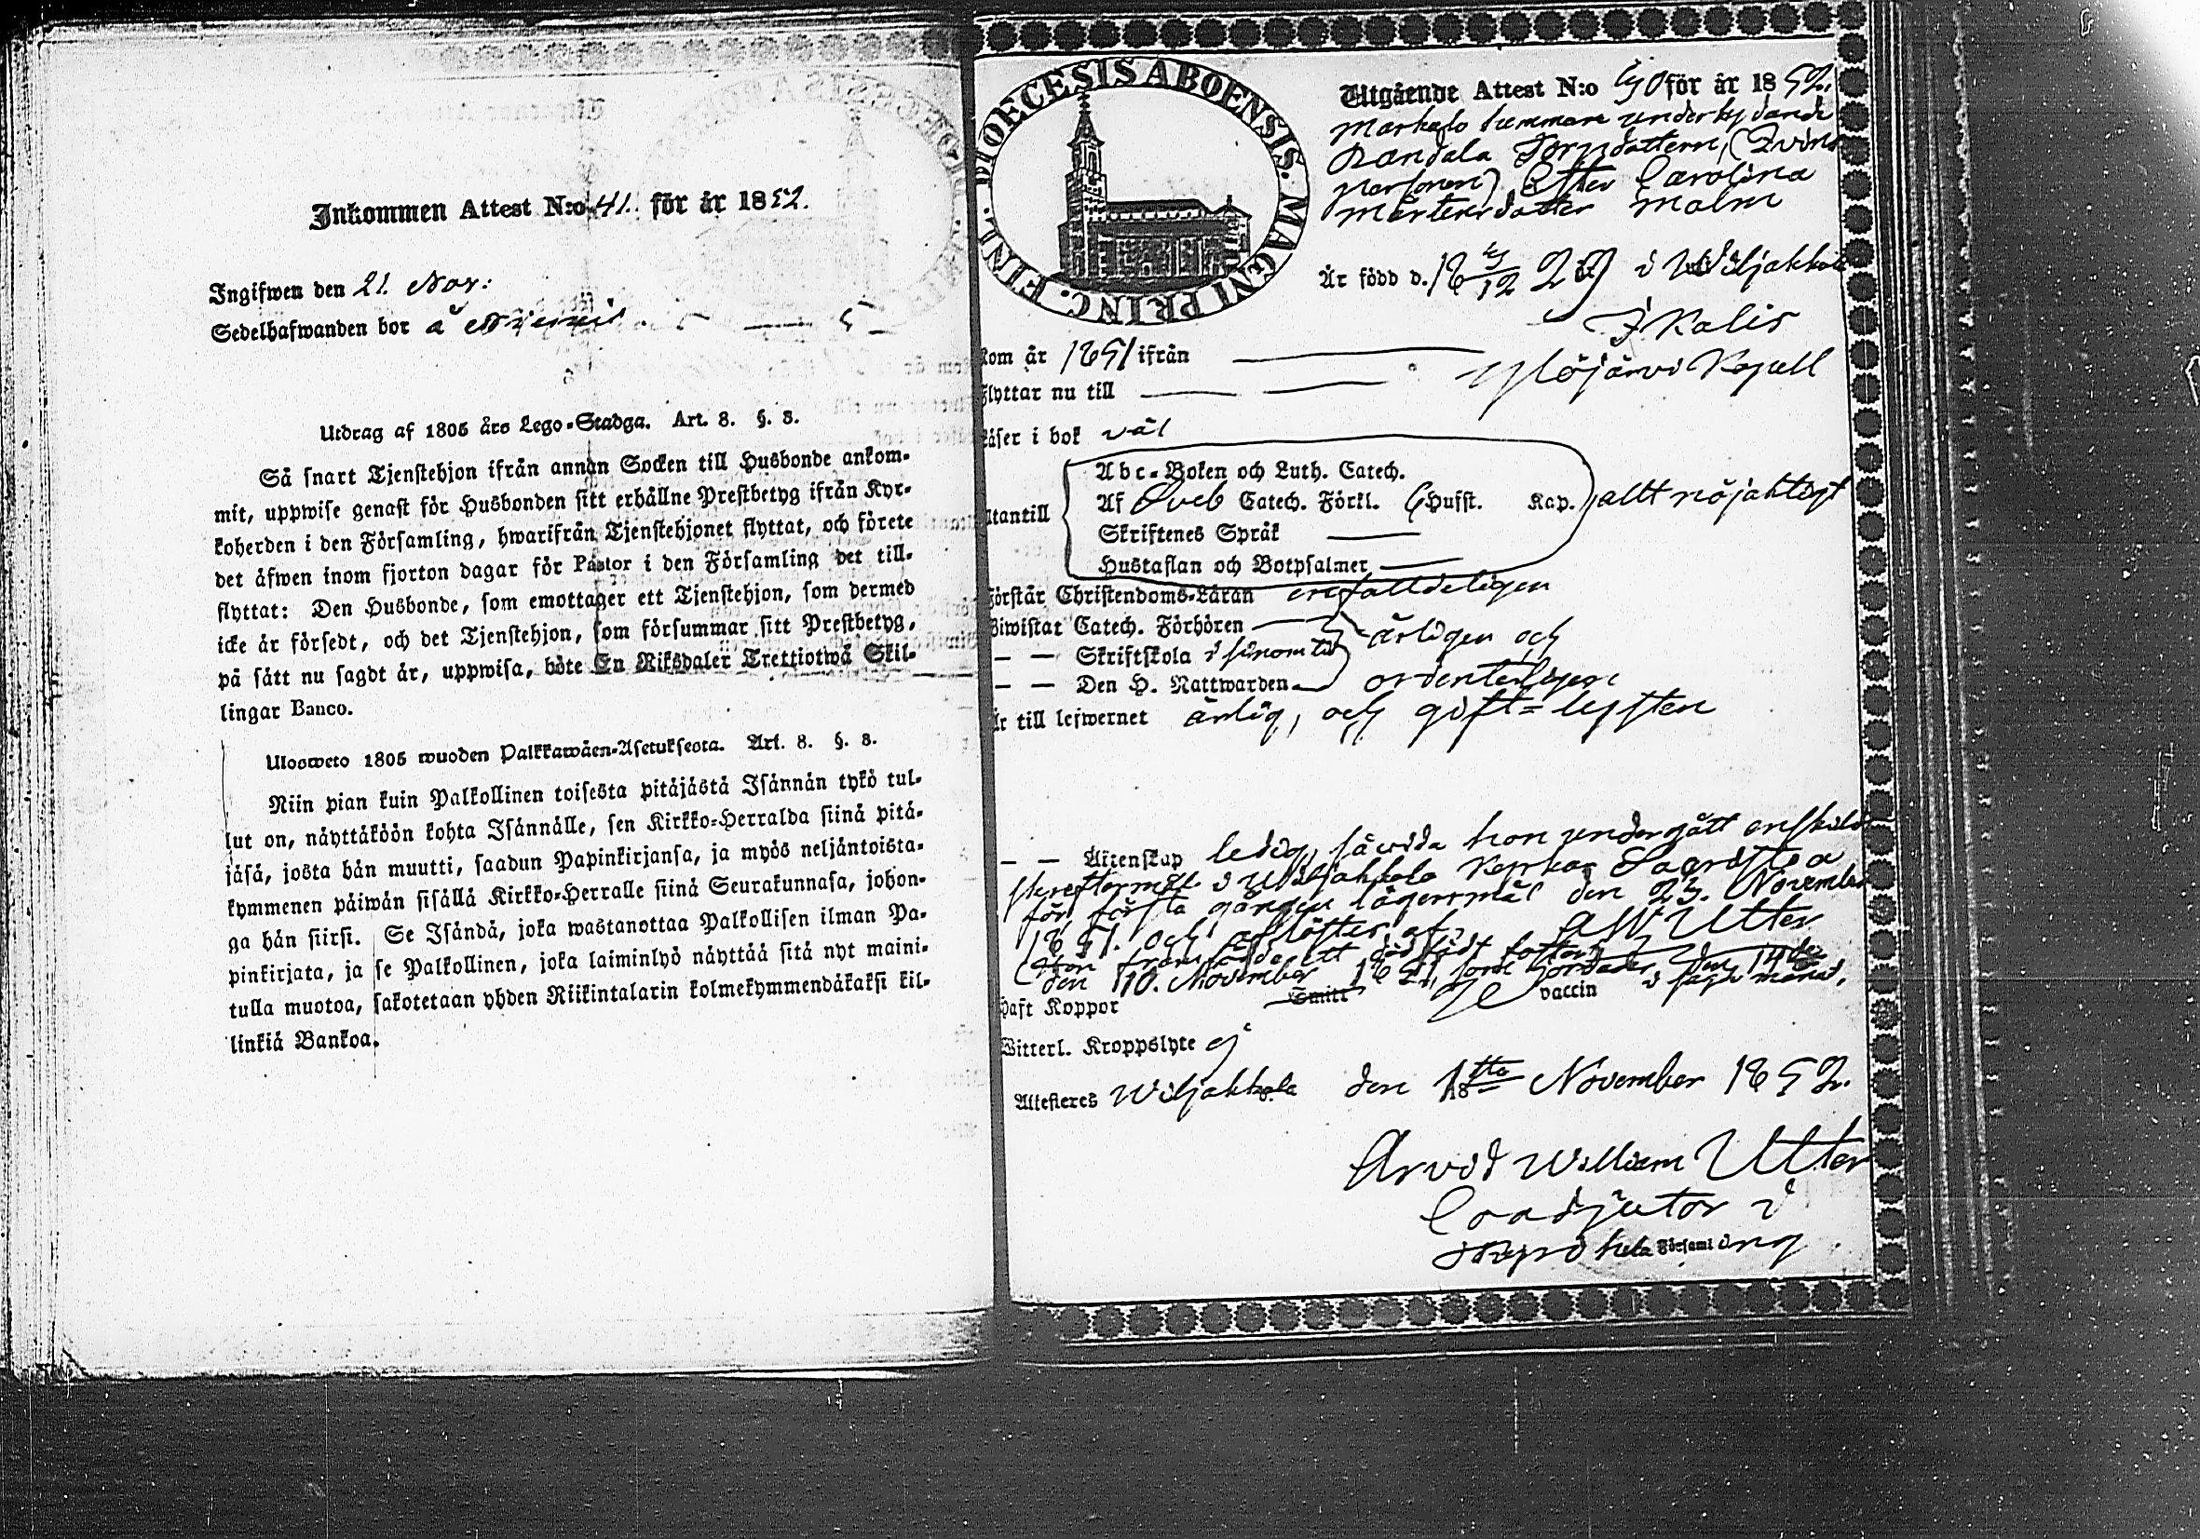 Inkommen Attest N:o 41. för år 1852.
Ingifwen den 21. Nov:
Sedelhafwanden bor å
Utdrag af 1805 års Lego-Stadga. Art. 8. §. 8.
Så snart Tjenstehjon ifrån annan Socken till Husbonde ankom-
mit, uppwise genast för Husbonden sitt erhållne Prestbetyg ifrån Kyr-
koherden i den Församling, hwarifrån Tjenstehjonet flyttat, och förete
det äfwen inom fjorton dagar för Pastor i den Församling det till-
flyttat: Den Husbonde, som emottager ett Tjenstehjon, som dermed
icke är försedt, och det Tjenstehjon, som försummar sitt Prestbetyg,
på sätt nu sagdt är, uppwisa, böte En Riksdaler Trettiotwå Skil-
lingar Banco.
Ulosweto 1805 wuoden Palkkawäen-Asetuksesta. Art. 8. §. 8.
Niin pian kuin Palkollinen toisesta pitäjästä Isännän tykö tul-
lut on, näyttäköön kohta Isännälle, sen Kirkko-Herralda siinä pitä-
jäsä, josta hän muutti, saadun Papinkirjansa, ja myös neljäntoista-
kymmenen päiwän sisällä Kirkko-Herralle siinä Seurakunnasa, johon-
ga hän siirsi. Se Isändä, joka wastanottaa Palkollisen ilman Pa-
pinkirjata, ja se Palkollinen, joka laiminlyö näyttää sitä nyt maini-
tulla muotoa, sakotetaan yhden Riikintalarin kolmekymmendäkaksi kil-
linkiä Bankoa.
DIOECESIS ABOENSIS. MAGNI PRINC. FINL.
Utgående Attest N:o för år 1852.
Torpdottern,
Carolina
Mårtensdotter Malm
Är född d. 18 12 29 i Wiljakkala
Ikalis
kom år 1851 ifrån
Flyttar nu till Ylöjärvi Kapell
läser i bok väl
Utantill
Abc-Boken och Luth. Catech.
Af Sveb Catech. Förkl. 6 Hufst. Kap. allt nöjaktigt
Skriftenes Språk
Hustaflan och Botpsalmer
Förstår Christendoms-Läran enfalldeligen
Biwistat Catech. Förhören
— — Skriftskola årligen och
— — Den H. Nattwarden ordenteligen
Är till lefwernet ärlig, och
— — Äktenskap ledig, såvida hon undergått enskild
skriftermål i Wiljakkala Kyrkas Sacristia
för första gången lägersmål den 23. November
1851. och aflöstes af AW Utter
(Hon framfödde ett dödfödt
den 10. November 1851, som i sagde månad.
Haft Koppor Smitt vaccin
Witterl. Kroppslyte ej
Attesteres Wiljakkala den November 1852.
Arvid William Utter
Coadjutor i
Församling